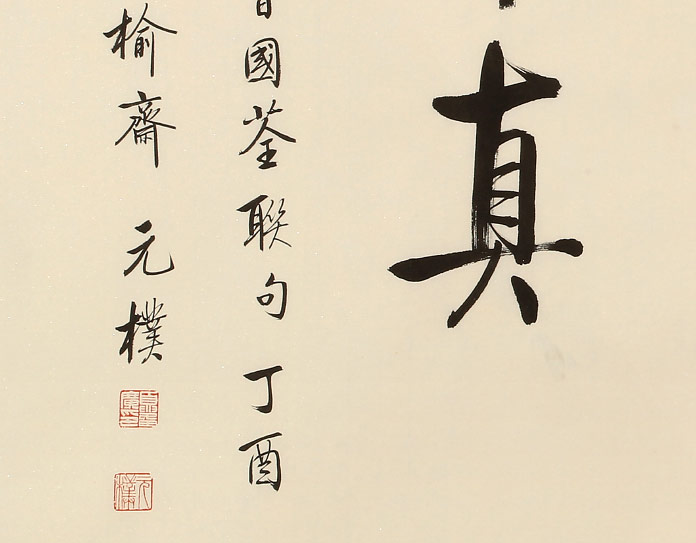 真
國荃聯句 丁酉
榆齋 元樸